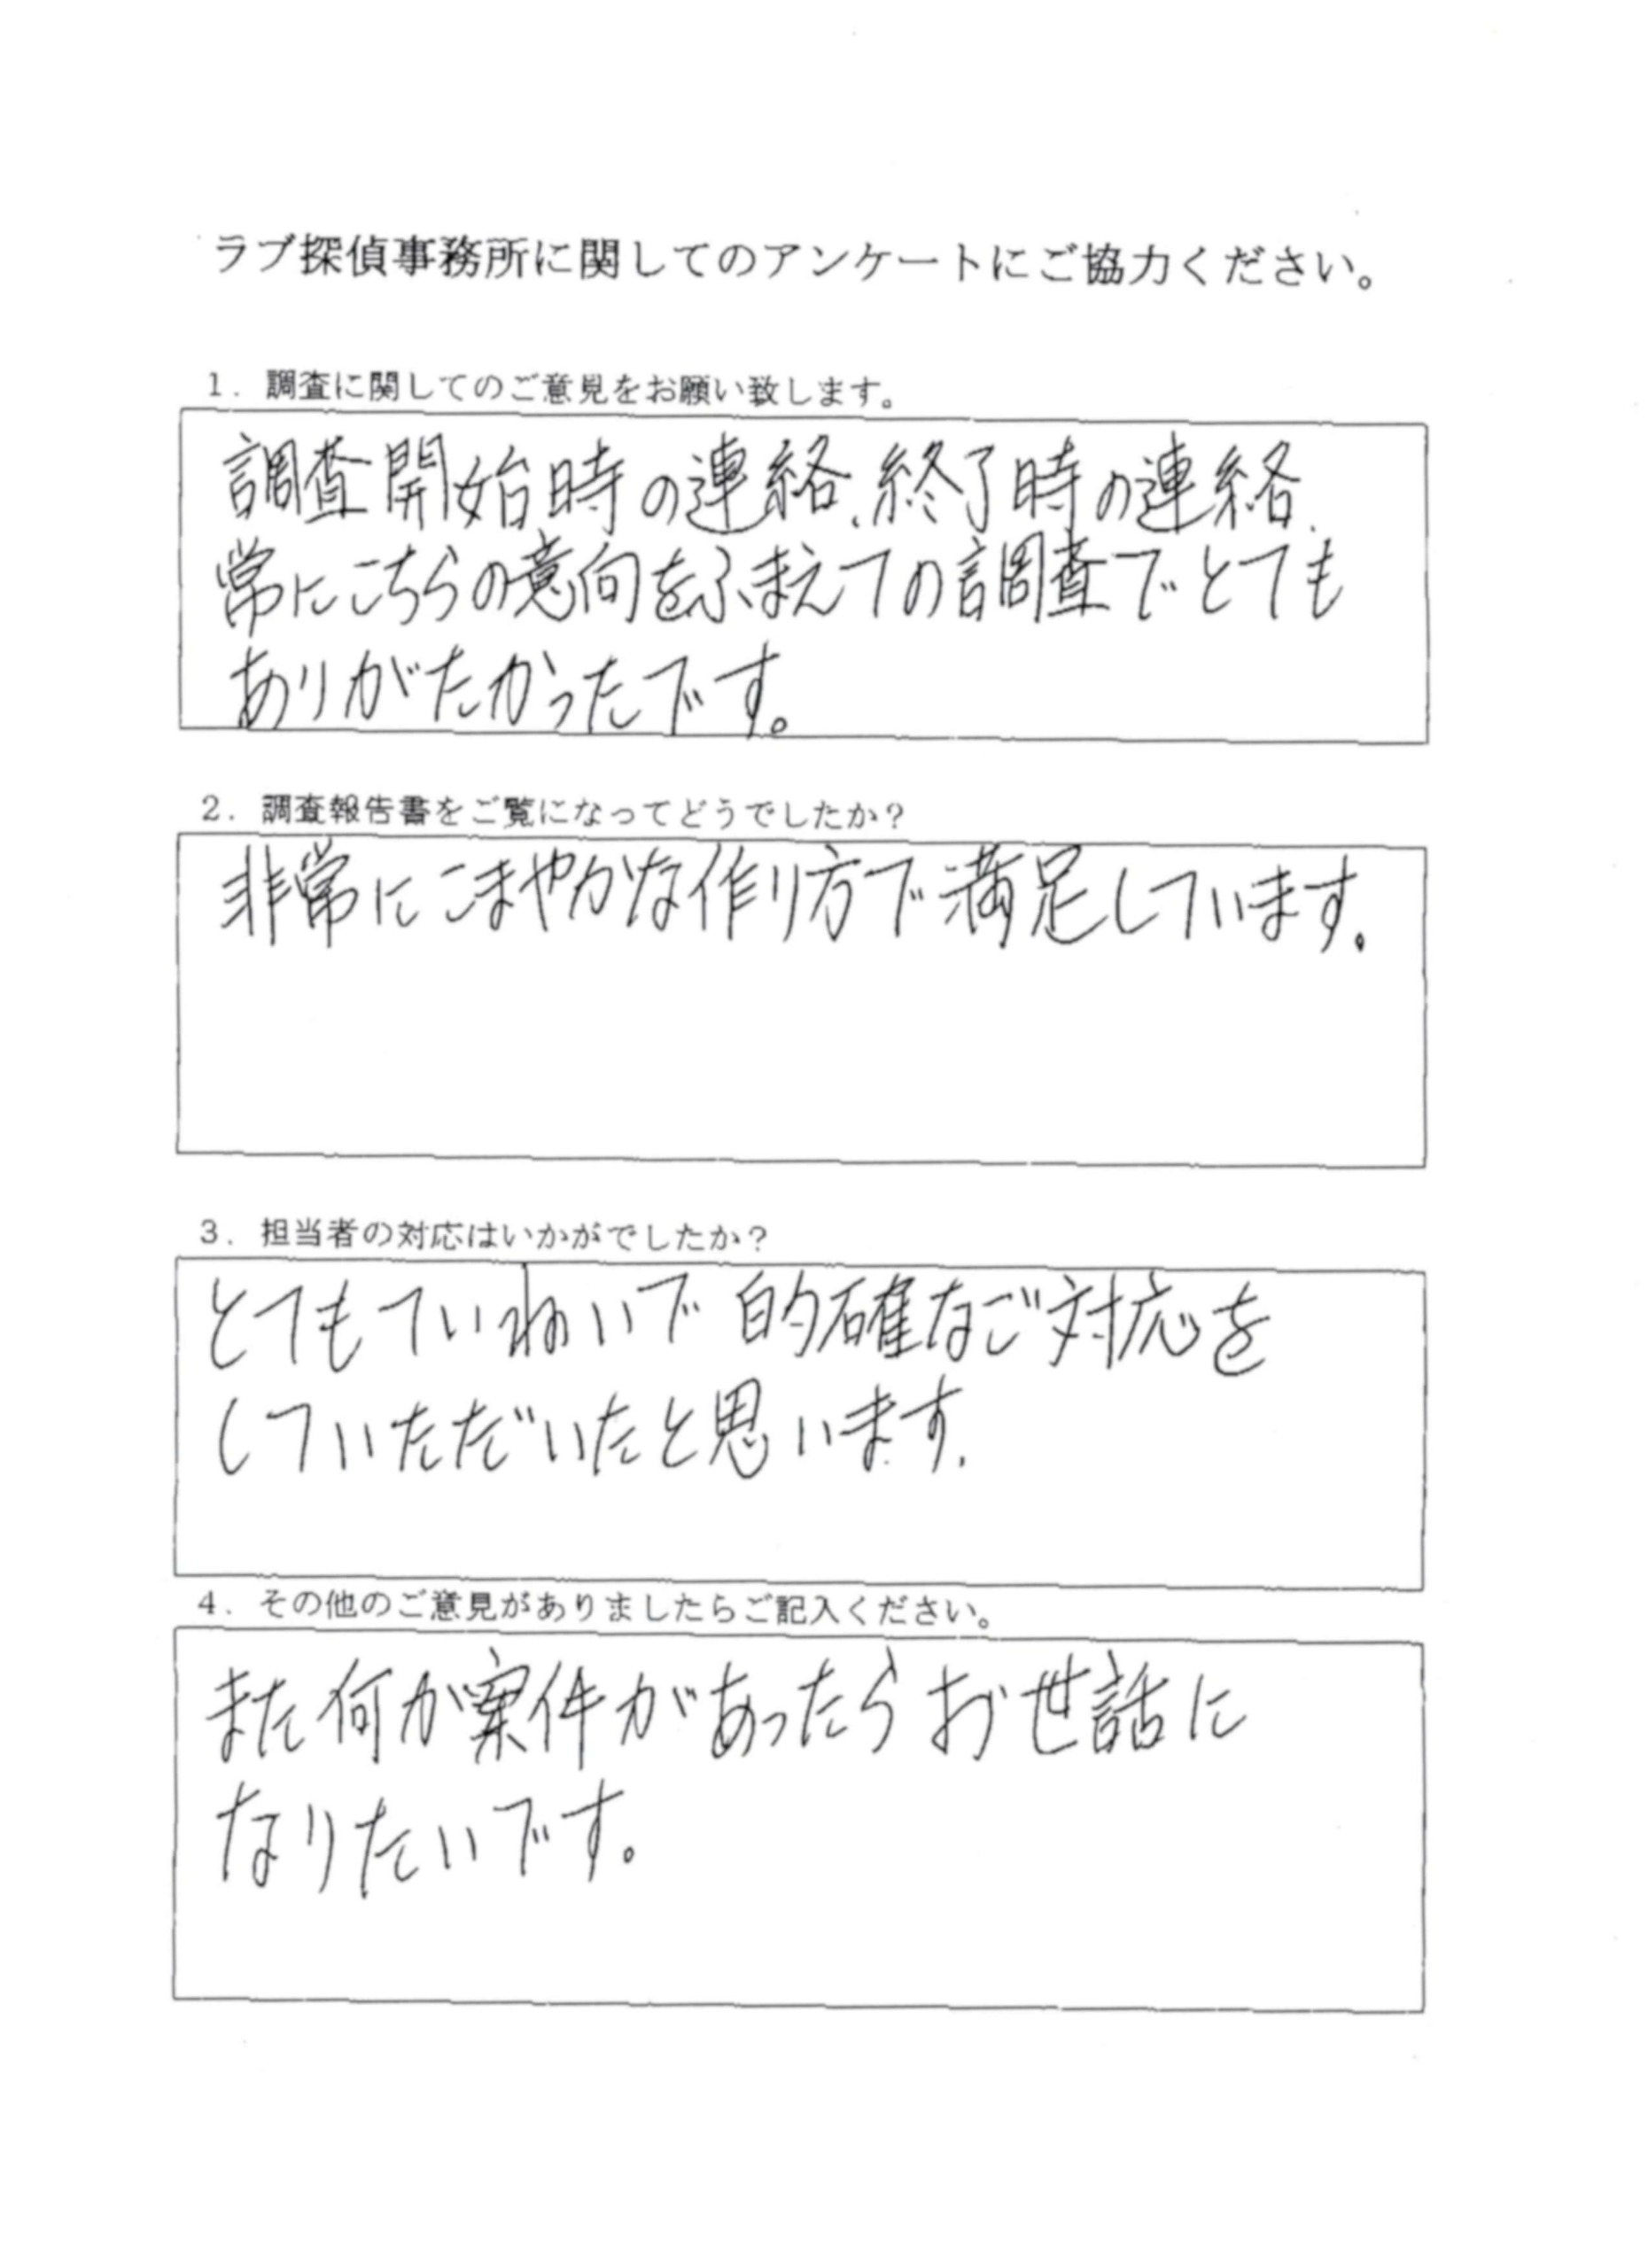 ラブ探偵事務所に関してのアンケートにご協力ください。
1. 調査に関してのご意見をお願い致します。
調査開始時の連絡、終了時の連絡、
常にこちらの意向をふまえての調査でとても
ありがたかったです。
2. 調査報告書をご覧になってどうでしたか?
非常にこまやかな作り方で満足しています。
3. 担当者の対応はいかがでしたか?
とてもていねいで的確なご対応を
していただいたと思います.
4. その他のご意見がありましたらご記入ください。
また何か案件があったらお世話に
なりたいです。